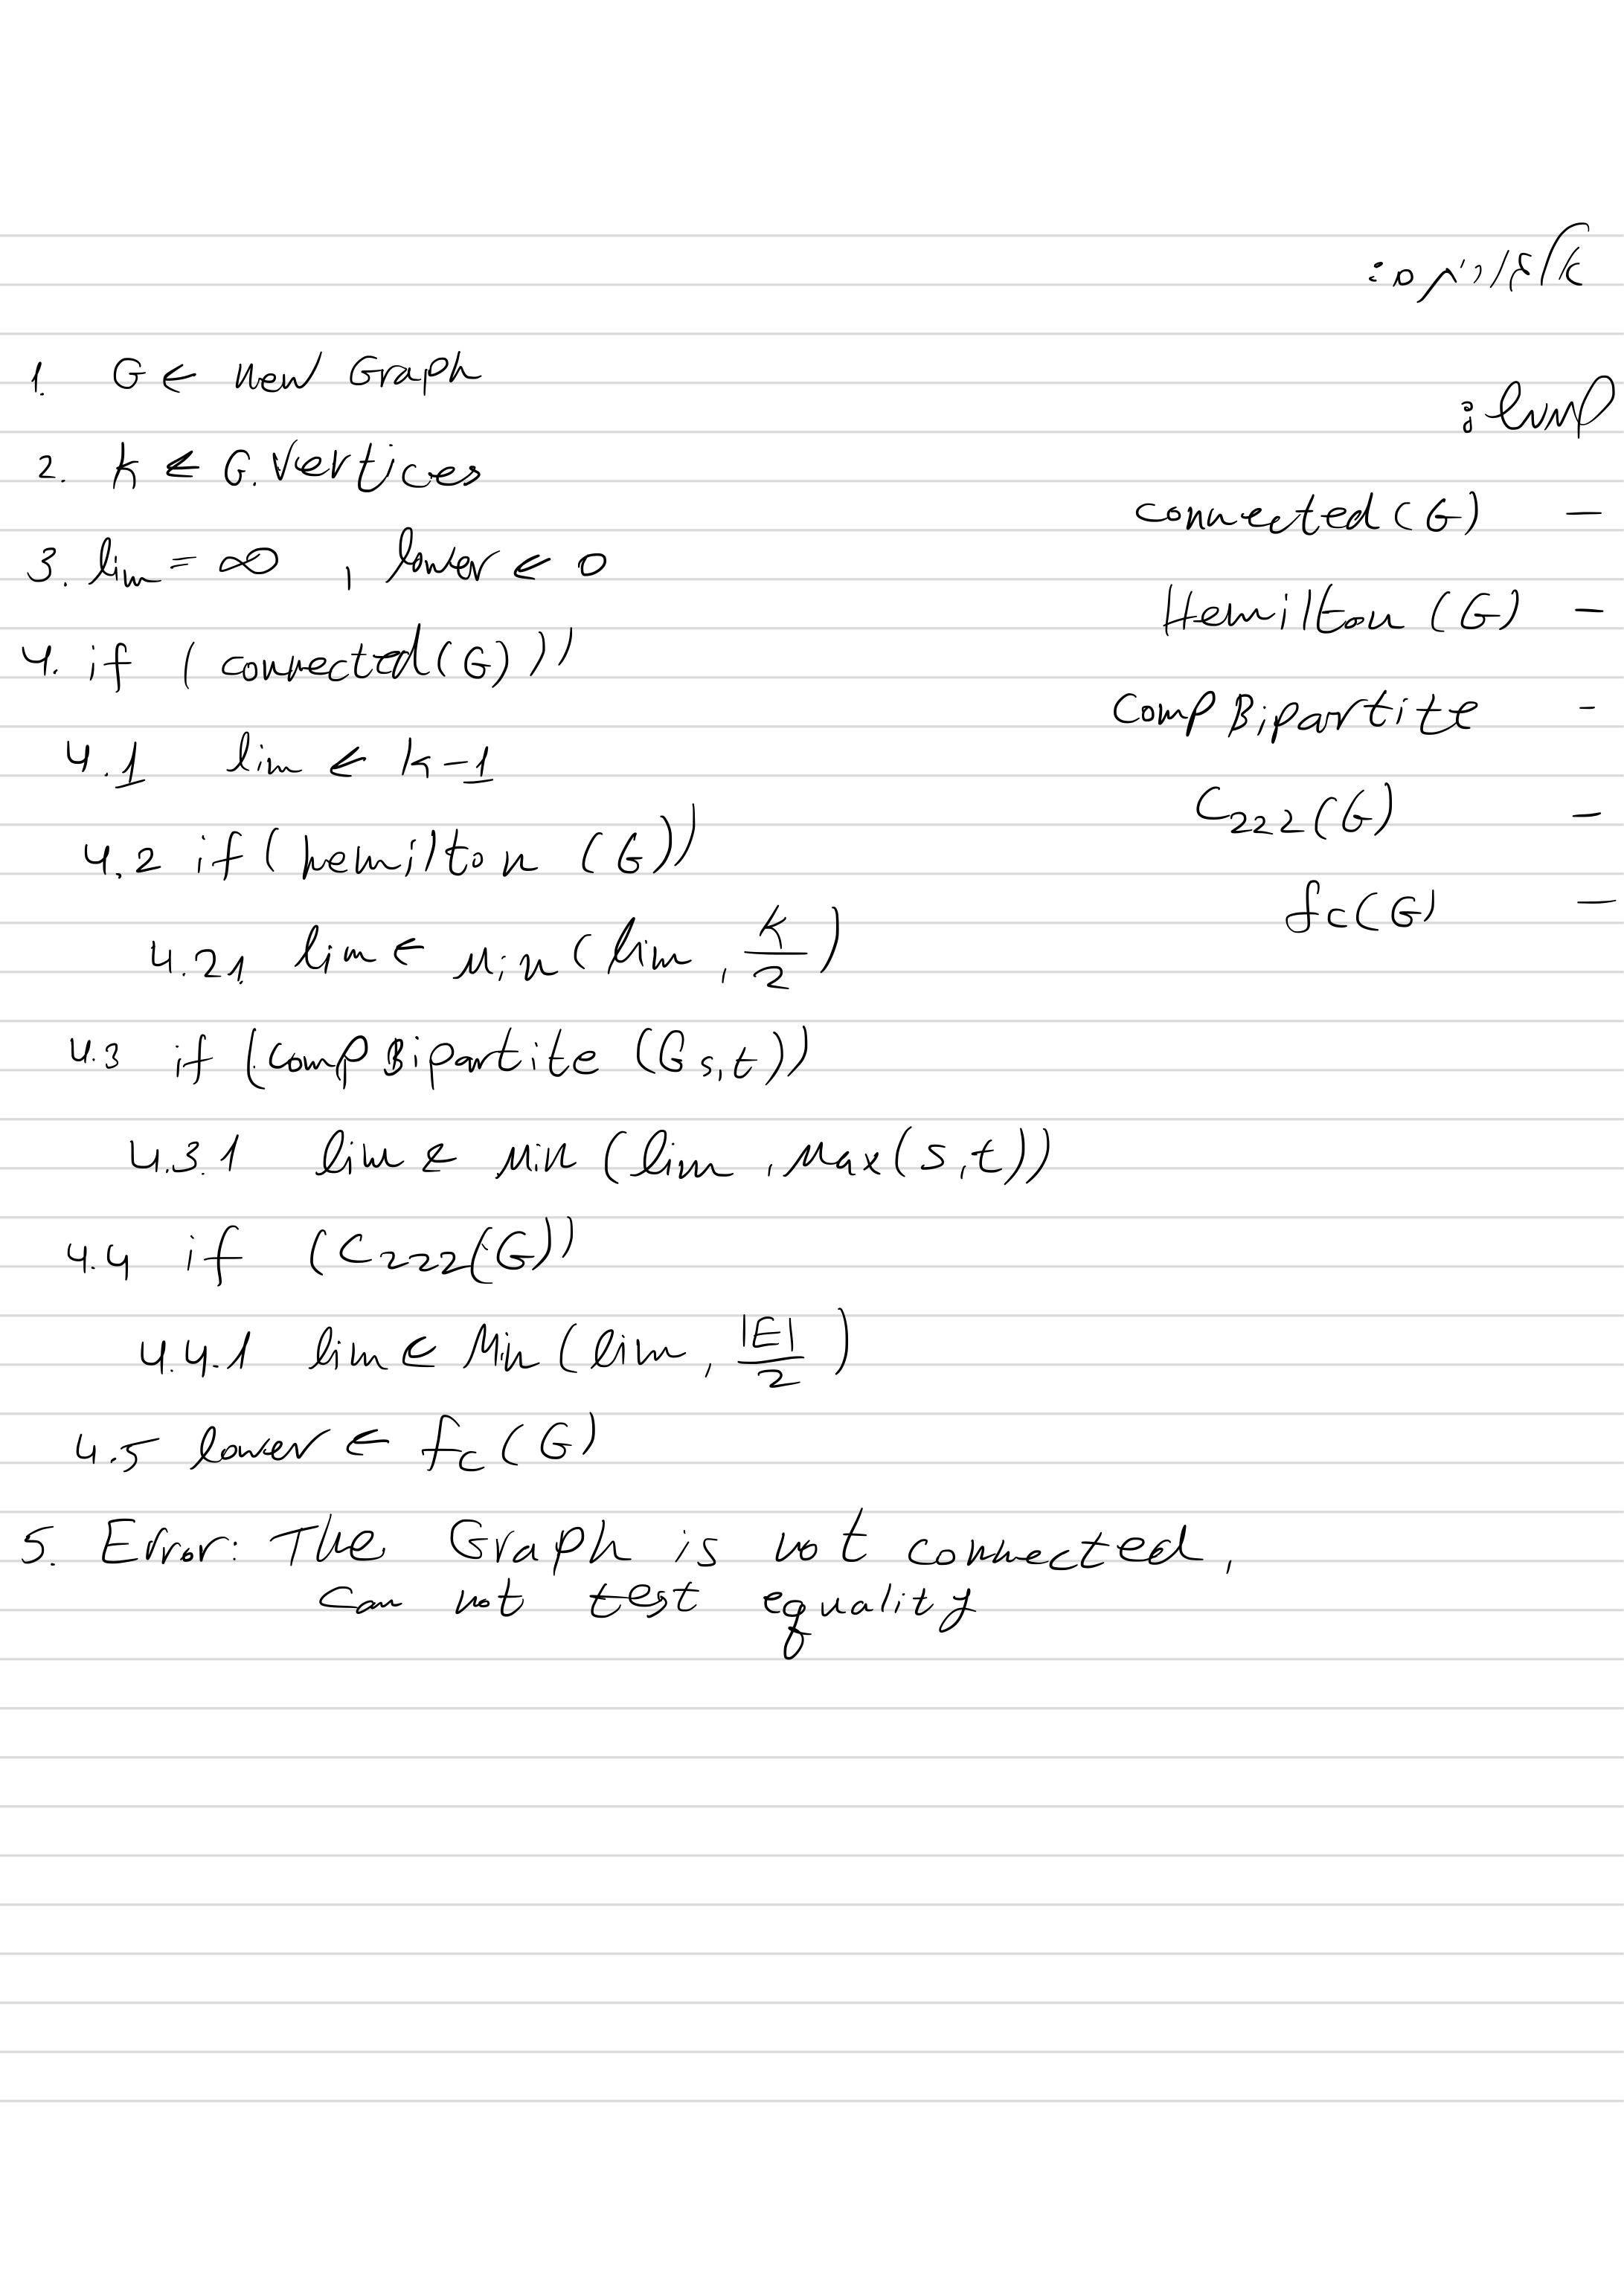 אלגוריתם:
1. G ← new Graph
2. k ← G.Vertices
3. lim = ∞ , lower ← 0
4. if (connected(G)))
4.1 lim ← k-1
4.2 if (hemilton (G))
4.21. lim ← Min (lim, K/2)
4.3 if (comp Bipartite (G s,t))
4.3.1 lim ← Min (lim, Max(s,t))
4.4 if (C₂₂₂(G))
4.4.1 lim ← Min (lim, |E|/2)
4.5 lower ← fc(G)
5. Error: The Graph is not connected,
can not test equality
connected(G) –
Hemilton (G) –
comp Bipartite -
C₂₂₂(G) –
fc(G) –